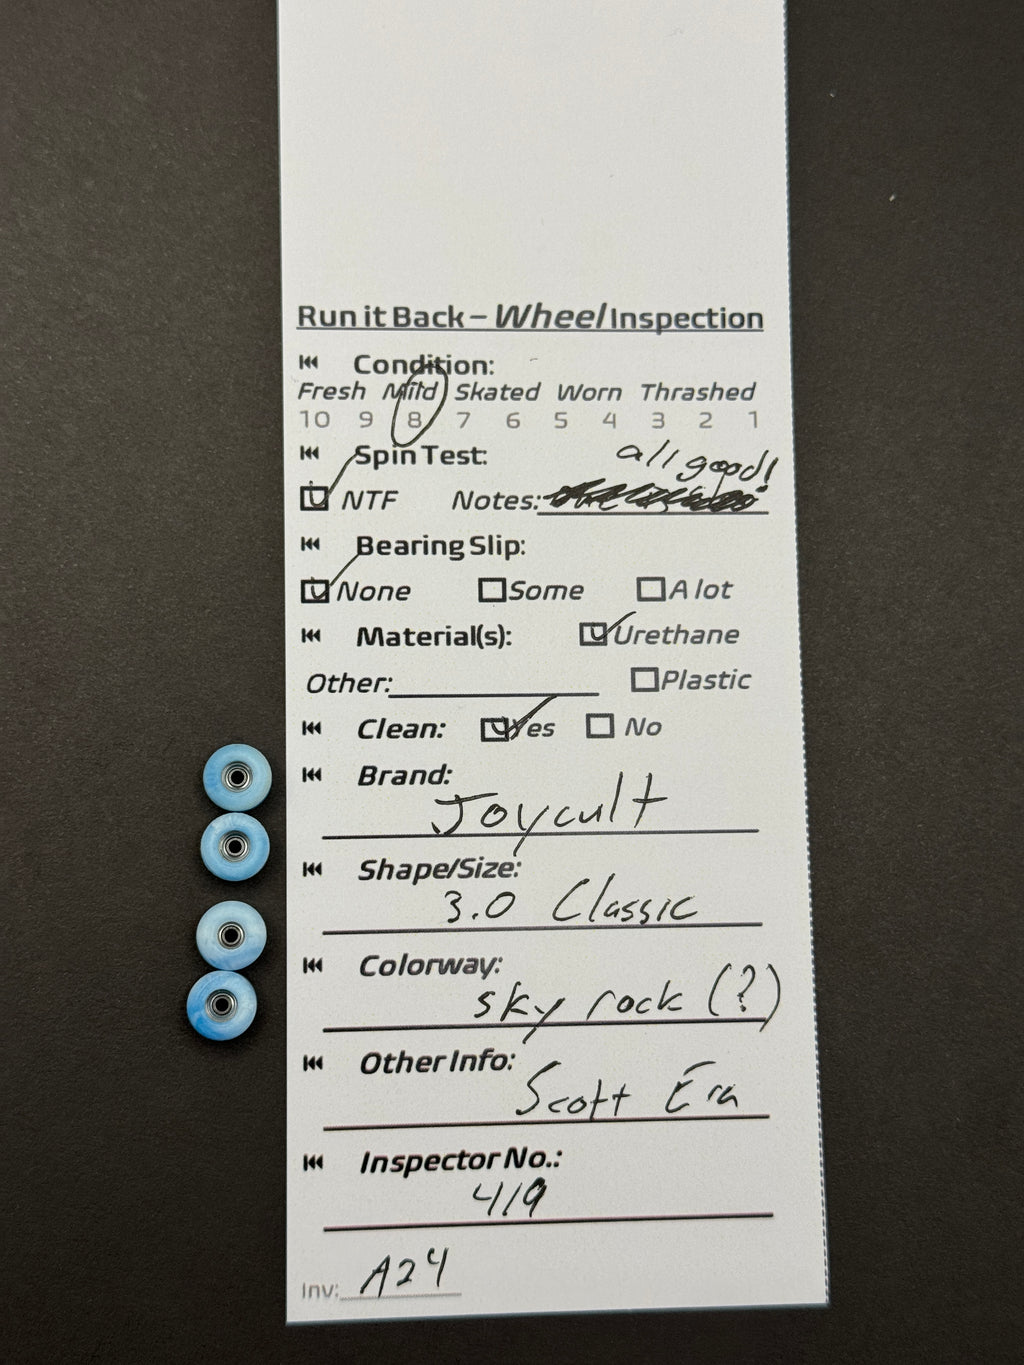 Run it Back – Wheel Inspection
Condition:
Fresh Mild Skated Worn Thrashed
10 9 8 7 6 5 4 3 2 1
Spin Test: all good!
NTF Notes:
Bearing Slip:
None Some A lot
Material(s): Urethane
Other: Plastic
Clean: Yes No
Brand:
Joycult
Shape/Size:
3.0 Classic
Colorway:
sky rock (?)
Other Info:
Scott Era
Inspector No.:
419
Inv: A24